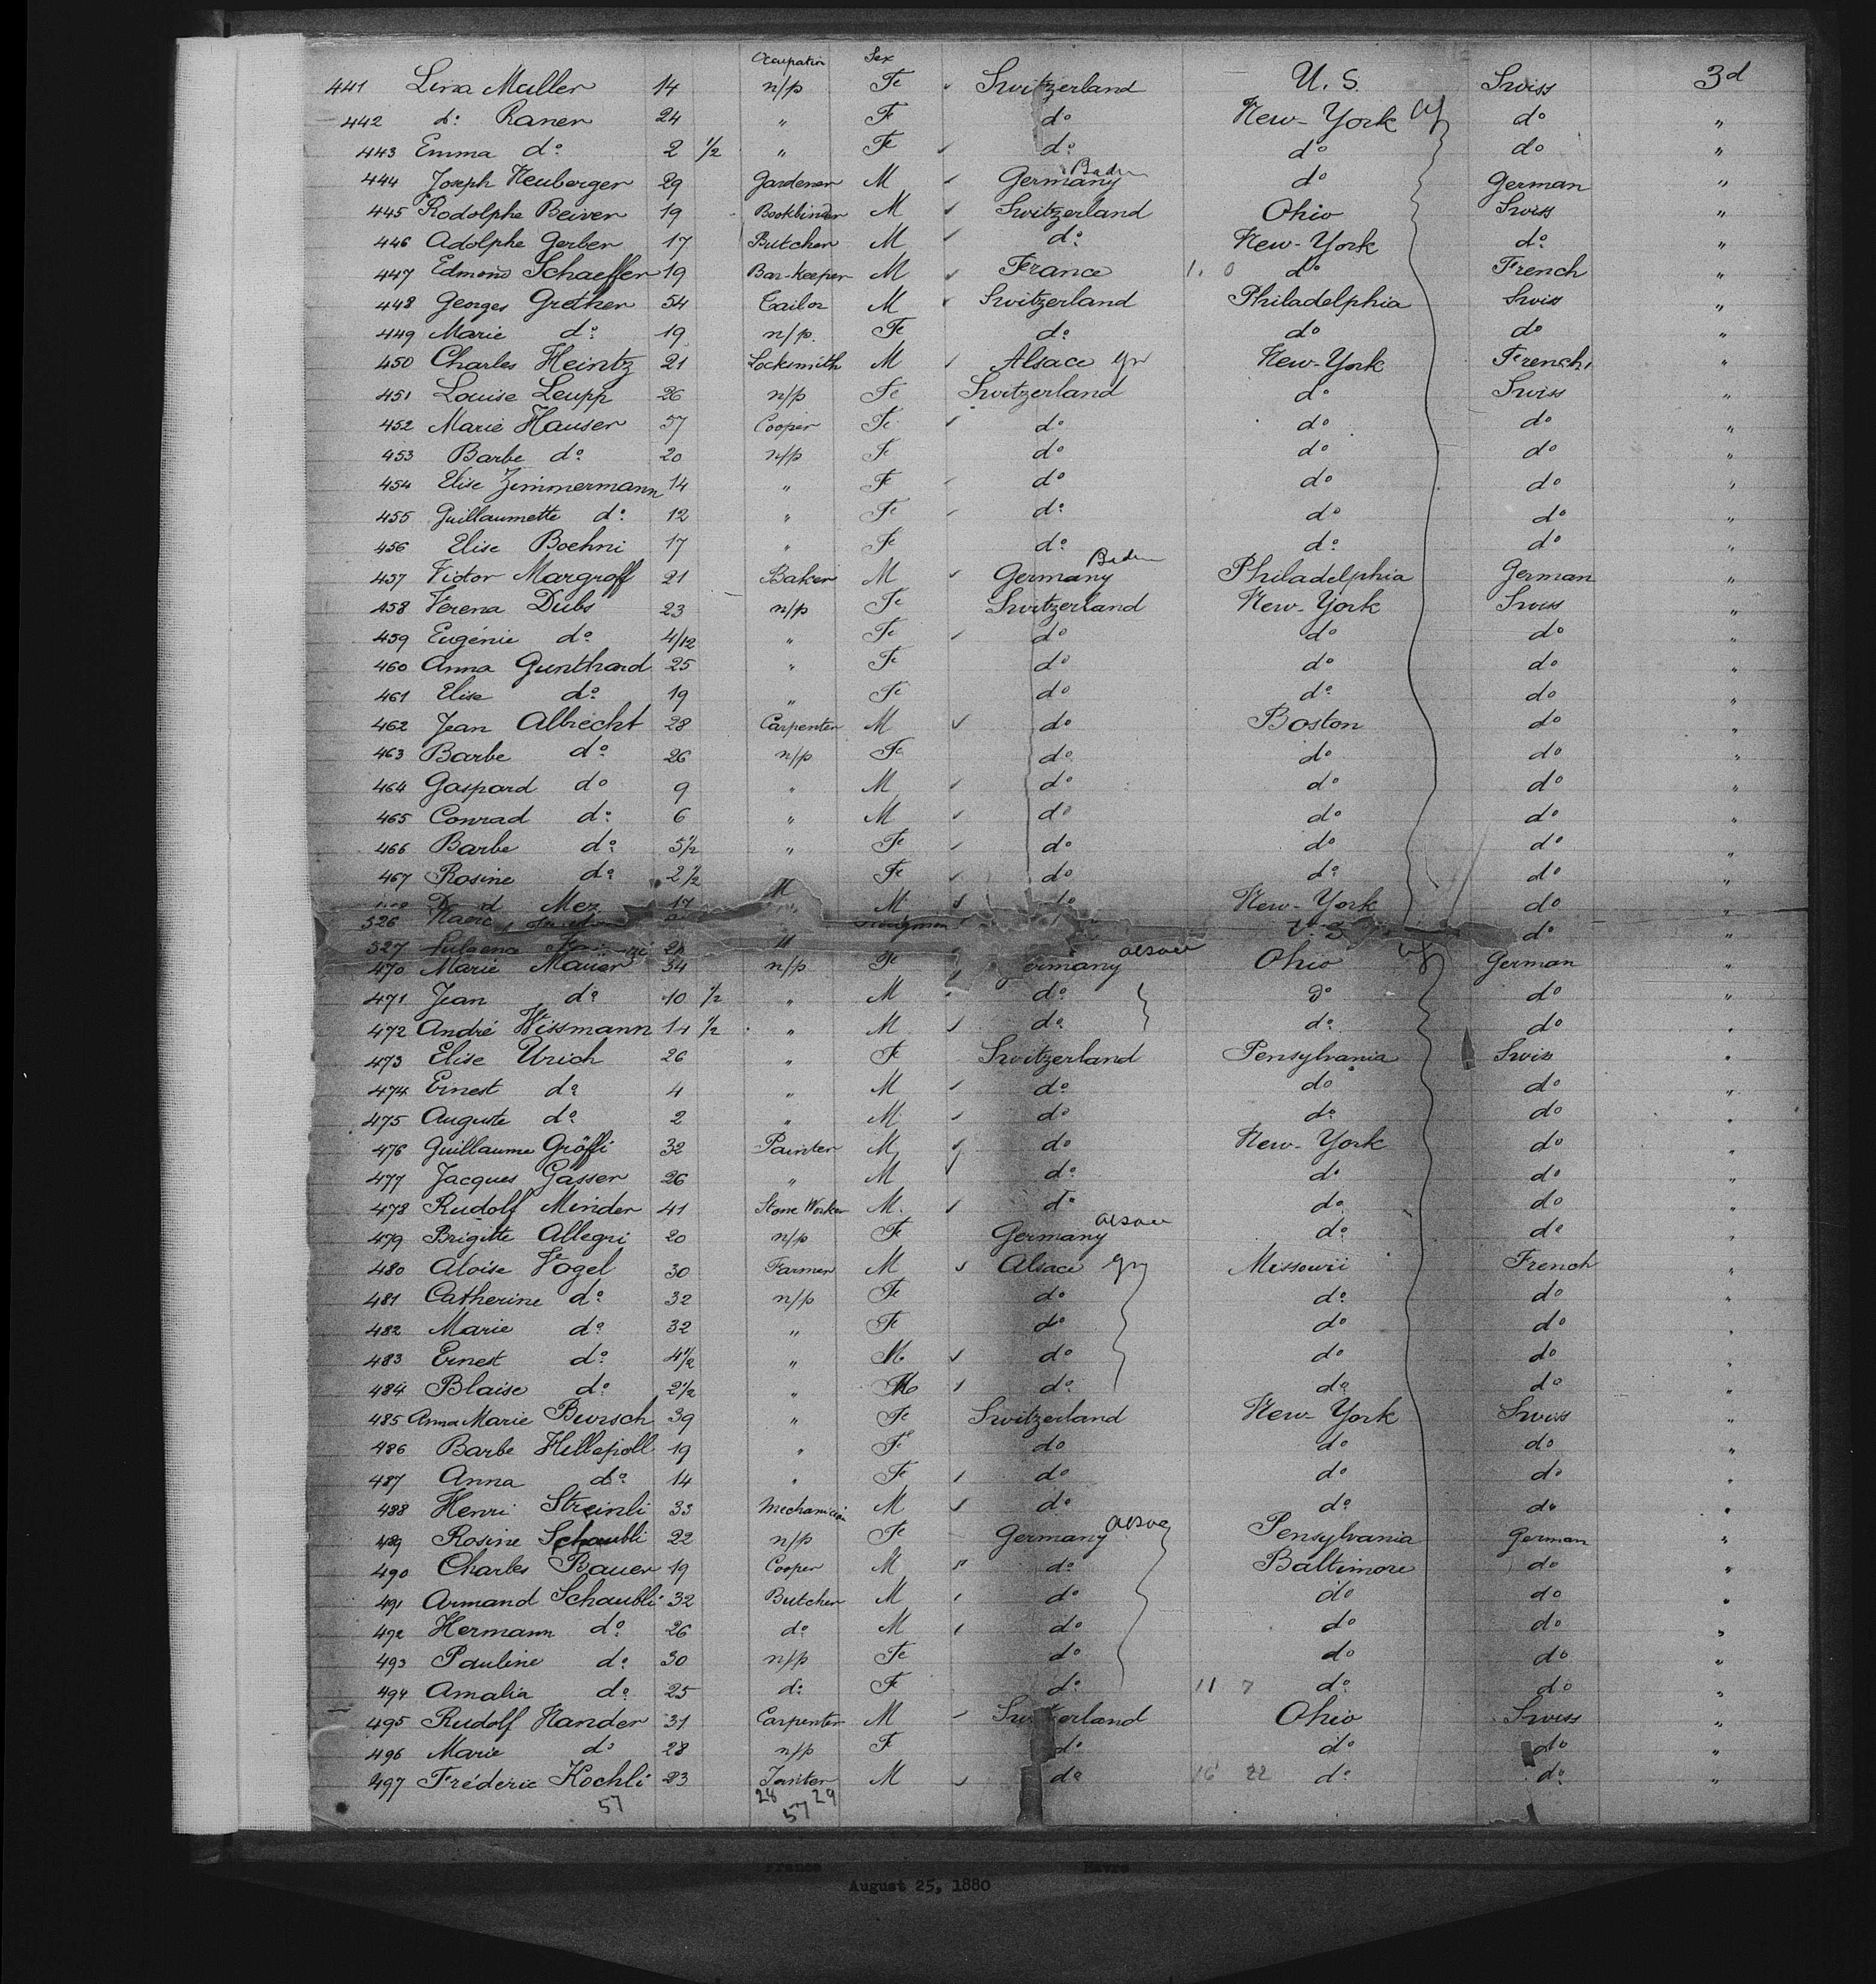 Occupation Sex
441 Lina Muller 14 n/p Fe Switzerland U.S. Swiss 3d
442 do Raner 24 " Fe do New-York do "
443 Emma do 2 1/2 " Fe do do do "
444 Joseph Neuberger 29 Gardener M Germany Baden do German "
445 Rodolphe Beiver 19 Bookbinder M Switzerland Ohio Swiss "
446 Adolphe Gerber 17 Butcher M do New-York do "
447 Edmond Schaeffer 19 Bar-Keeper M France 1. 0 do French "
448 Georges Grether 54 Tailor M Switzerland Philadelphia Swiss "
449 Marie do 19 n/p. Fe do do do "
450 Charles Heintz 21 Locksmith M Alsace Gr New-York French "
451 Louise Leupp 26 n/p Fe Switzerland do Swiss "
452 Marie Hauser 57 Cooper Fe do do do "
453 Barbe do 20 n/p Fe do do do "
454 Elise Zimmermann 14 " Fe do do do "
455 Guillaumette do 12 " Fe do do do "
456 Elise Boehni 17 " Fe do do do "
457 Victor Margroff 21 Baker M Germany Baden Philadelphia German "
458 Verena Dubs 23 n/p Fe Switzerland New-York Swiss "
459 Eugénie do 4/12 " Fe do do do "
460 Anna Gunthard 25 " Fe do do do "
461 Elise do 19 " Fe do do do "
462 Jean Albrecht 28 Carpenter M do Boston do "
463 Barbe do 26 n/p Fe do do do "
464 Gaspard do 9 " M do do do "
465 Conrad do 6 " M do do do "
466 Barbe do 5 1/2 " Fe do do do "
467 Rosine do 2 1/2 " Fe do do do "
Mez 17 " M do New-York do "
526 do "
527 "
470 Marie Mauer 34 n/p Fe ermany Alsace Ohio German "
471 Jean do 10 1/2 " M do do do "
472 André Wissmann 14 1/2 " M do do do "
473 Elise Urich 26 " Fe Switzerland Pensylvania Swiss "
474 Ernest do 4 " M do do do "
475 Auguste do 2 " M do do do "
476 Guillaume Gröffi 32 Painter M do New-York do "
477 Jacques Gasser 26 " M do do do "
478 Rudolf Minder 41 Stone Worker M. do do do "
479 Brigitte Allegri 20 n/p Fe Germany Alsace do do "
480 Aloise Vogel 30 Farmer M Alsace Gr Missouri French "
481 Catherine do 32 n/p Fe do do do "
482 Marie do 32 " Fe do do do "
483 Ernest do 4 1/2 " M do do do "
484 Blaise do 2 1/2 " M do do do "
485 Anna Marie Bursch 39 " Fe Switzerland New-York Swiss "
486 Barbe Hillepoll 19 " Fe do do do "
487 Anna do 14 " Fe do do do "
488 Henri Streinli 33 Mechanician M do do do "
489 Rosine Schaubli 22 n/p Fe Germany Alsace Pensylvania German "
490 Charles Bauer 19 Cooper M do Baltimore do "
491 Armand Schaubli 32 Butcher M do do do "
492 Hermann do 26 do M do do do "
493 Pauline do 30 n/p Fe do do do "
494 Amalia do 25 do Fe do 11 7 do do "
495 Rudolf Hander 31 Carpenter M Switzerland Ohio Swiss "
496 Marie do 28 n/p Fe do do do "
497 Fréderic Kochli 23 Janiter M do 16 22 do do "
57 28 57 29
France Havre
August 25, 1880